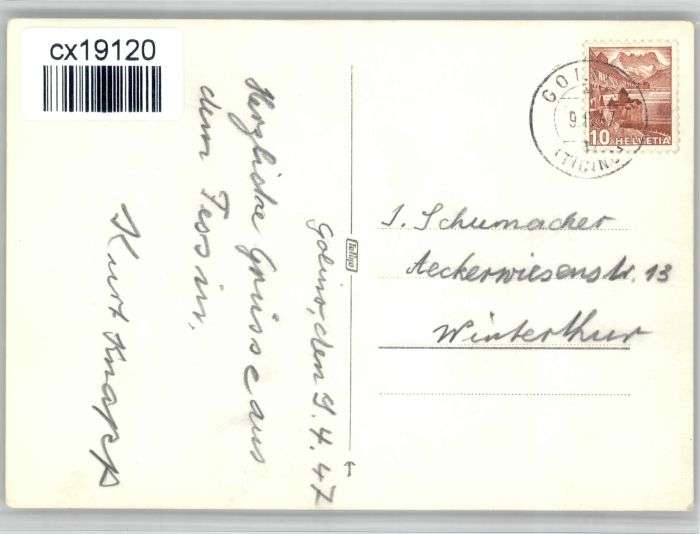 cx19120
Golino, den 9.4.47
Herzliche Grüsse aus
dem Tessin.
Kurt Knapp
J. Schumacher
Aeckerwiesenstr. 13
Winterthur
10 HELVETIA
GOL
9
(TICINO